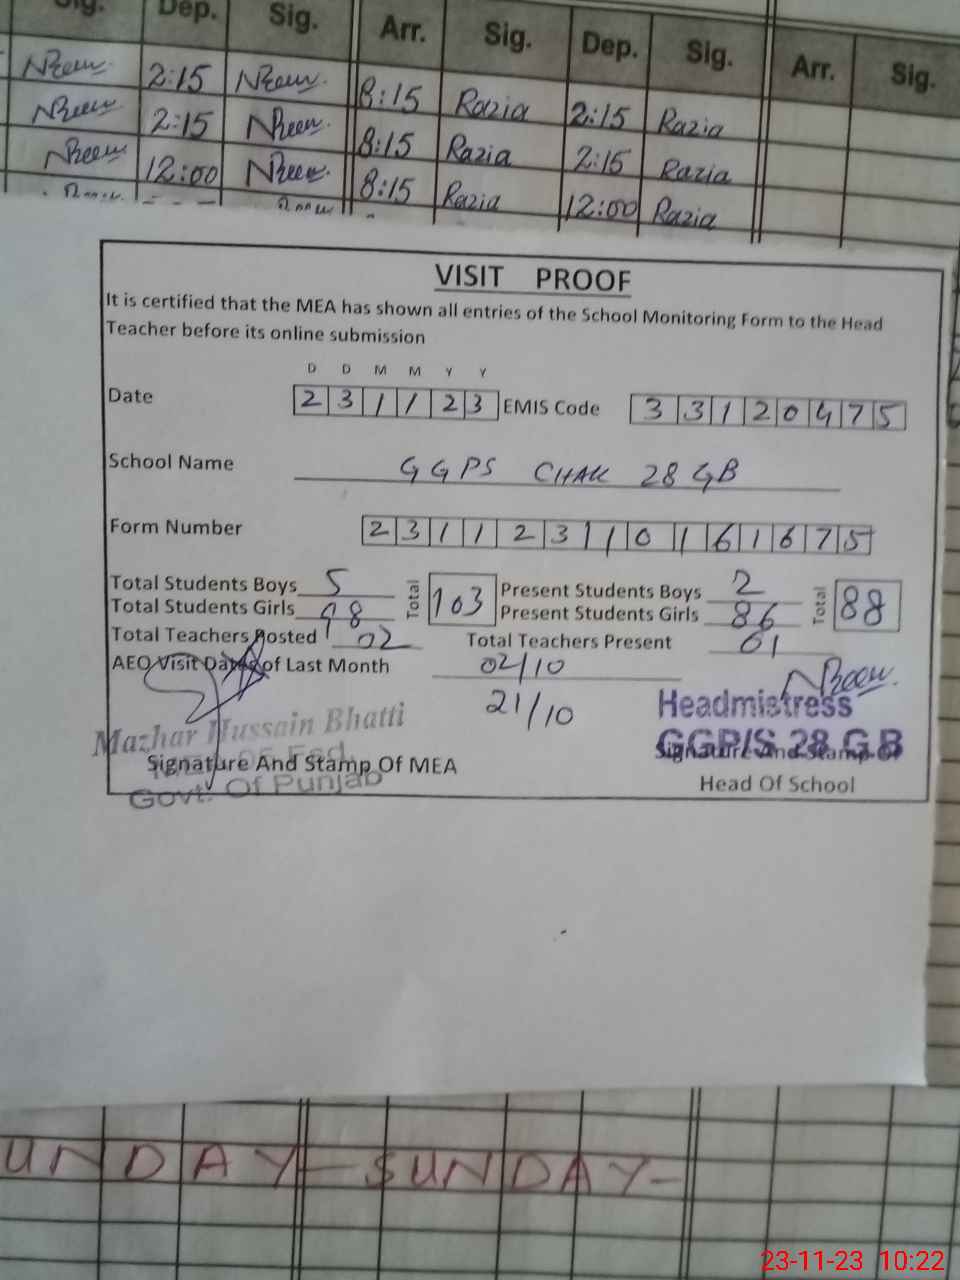 Sig. Dep. Sig. Arr. Sig. Dep. Sig. Arr. Sig.
2:15 8:15 Razia 2:15 Razia
2:15 8:15 Razia 2:15 Razia
12:00 8:15 Razia 12:00 Razia
VISIT PROOF
It is certified that the MEA has shown all entries of the School Monitoring Form to the Head
Teacher before its online submission
D D M M Y Y
Date 2 3 1 1 2 3 EMIS Code 3 3 1 2 0 4 7 5
School Name GGPS CHAK 28 GB
Form Number 2 3 1 1 2 3 1 1 0 1 6 1 6 7 5
Total Students Boys 5 Total 103 Present Students Boys 2 Total 88
Total Students Girls 98 Present Students Girls 86
Total Teachers Posted 02 Total Teachers Present 01
AEO Visit Dates of Last Month 02/10
21/10
Mazhar Hussain Bhatti
Headmistress
GGP/S 28 G.B
Signature And Stamp Of MEA
Signature And Stamp Of
Govt. Of Punjab
Head Of School
UNDAY - SUNDAY -
23-11-23 10:22